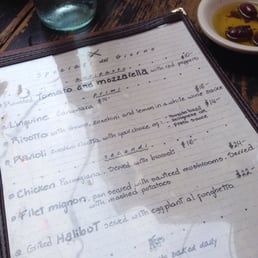 Specials del Giorno
Tomato and mozzarella with red peppers $10-
Primi
Linguine Carbonara $14-
Risotto with shrimp, zucchini and lemon in a white wine sauce
Ravioli $16-
Secondi
Chicken Parmigiana. Served with broccoli $18-
Filet mignon, pan seared with sauteed mushrooms. Served $24-
with mashed potatoes
Grilled Halibut served with eggplant al funghetto $22-
baked daily